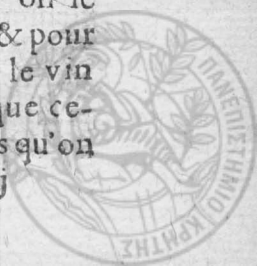 on le
& pour
le vin
que ce-
s qu'on
j
ΠΑΝΕΠΙΣΤΗΜΙΟ ΚΡΗΤΗΣ